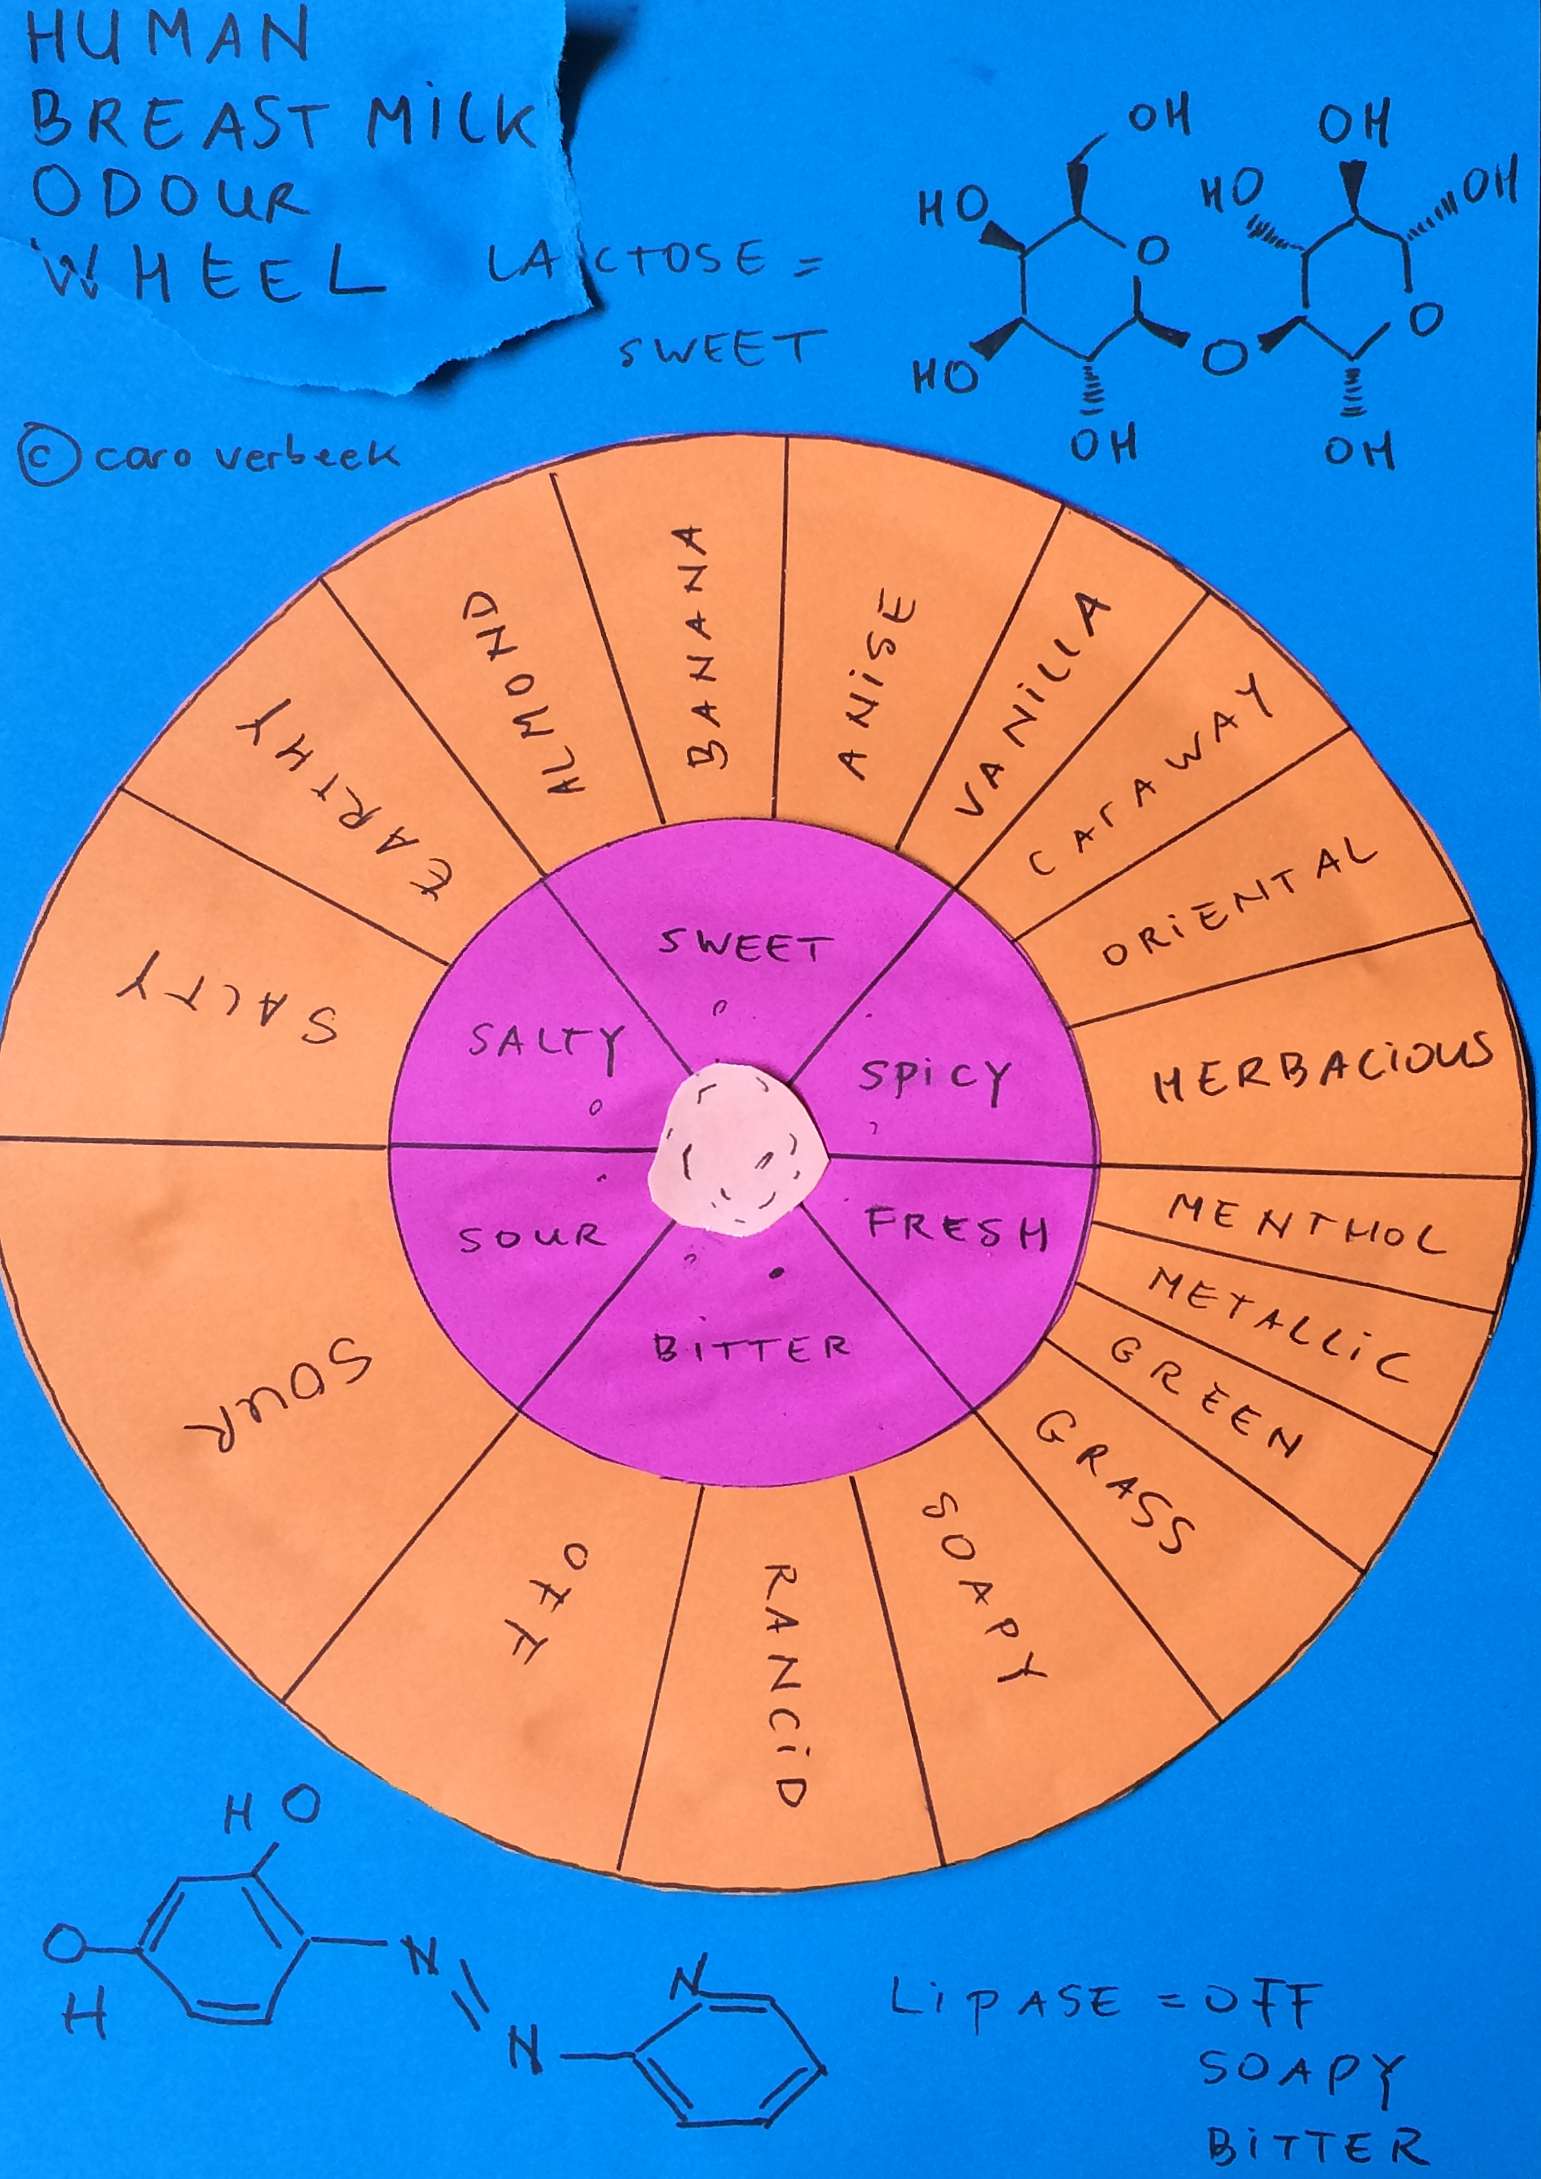 HUMAN
BREAST MILK
ODOUR
WHEEL
LACTOSE =
SWEET
© caro verbeek
OH
HO
O
HO
OH
O
HO
OH
OH
O
OH
SWEET
SPICY
FRESH
BITTER
SOUR
SALTY
ALMOND
BANANA
ANISE
VANILLA
CARAWAY
ORIENTAL
HERBACIOUS
MENTHOL
METALLIC
GREEN
GRASS
SOAPY
RANCID
OFF
SOUR
SALTY
EARTHY
HO
O
H
N
N
N
LIPASE = OFF
SOAPY
BITTER